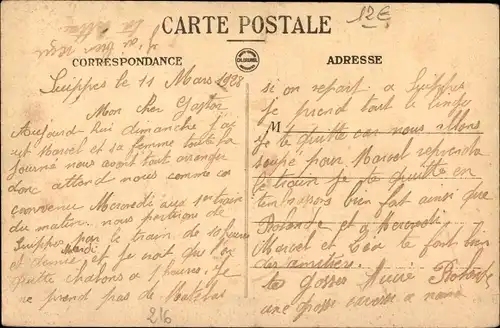 CARTE POSTALE
12€
j'ai bien reçu
ta lettre
CORRESPONDANCE
ADRESSE
Suippes le 11 Mars 1928
Mon cher Gaston
Aujourd hui dimanche j'ai
vu Marcel et sa femme toute la
journé nous avont tout arranger
donc attend nous comme
convenu Mercredi aux
du matin. nous partirons de
Suippes Mardi par le train de 10 heures
et demie, et je voit que l'on
quitte chalons a 1 heures. Je
ne prend pas de Matelas
216
si on repart a Suippes
je prend tout le linge
M
je te quitte car nous allons
soupé pour Marcel reprendre
le train je te quitte en
t'embrassons bien fort ainsi que
Rolande et a Mercredi
Marcel et Léa te font bien
des amitiées
tes Gosses Rolande
une grosse caresse a